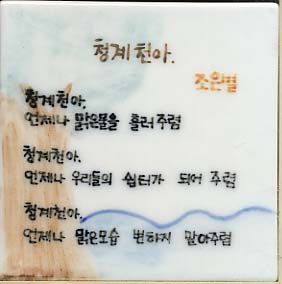 청계천아.
조은별
청계천아.
언제나 맑은물을 흘러주렴
청계천아.
언제나 우리들의 쉼터가 되어 주렴
청계천아.
언제나 맑은모습 변하지 말아주렴